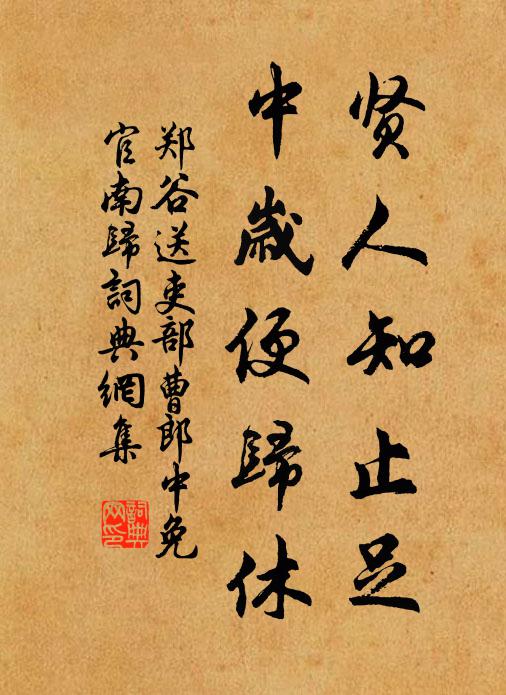 贤人知止足
中歲便歸休
郑谷送吏部曹郎中免
官南歸詞典網集
詞典
网印